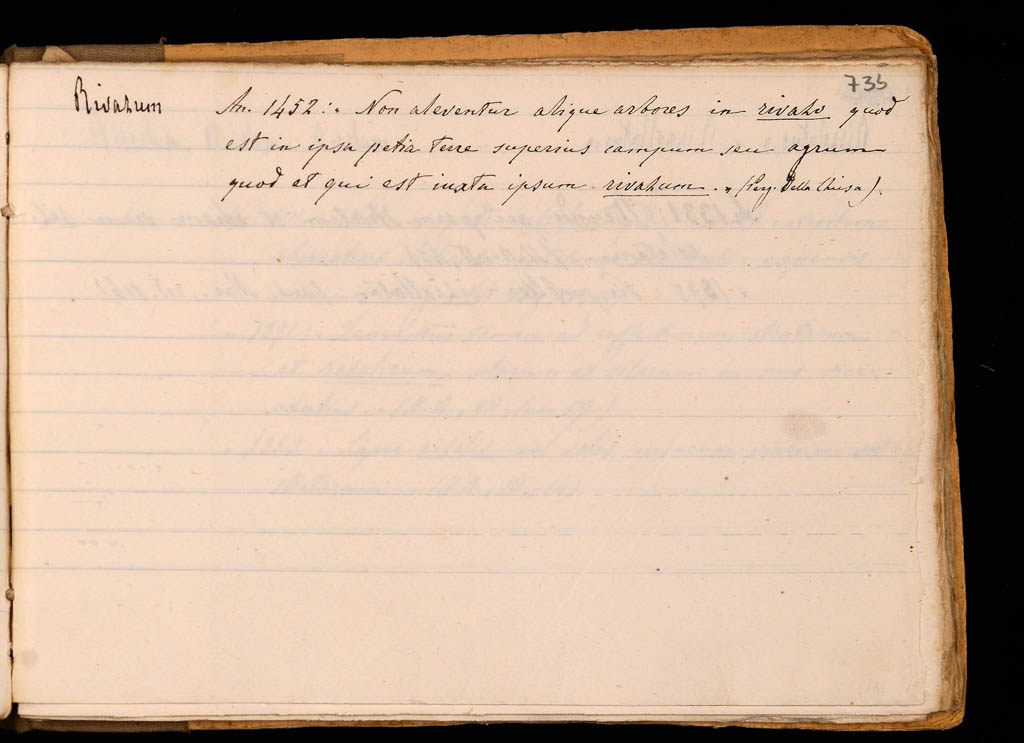 735
Rivatum An. 1452: " Non aleventur alique arbores in rivato quod
est in ipsa petia terre superius campum seu agrum
quod et qui est iuxta ipsum rivatum. " (Perg. Della Chiesa).